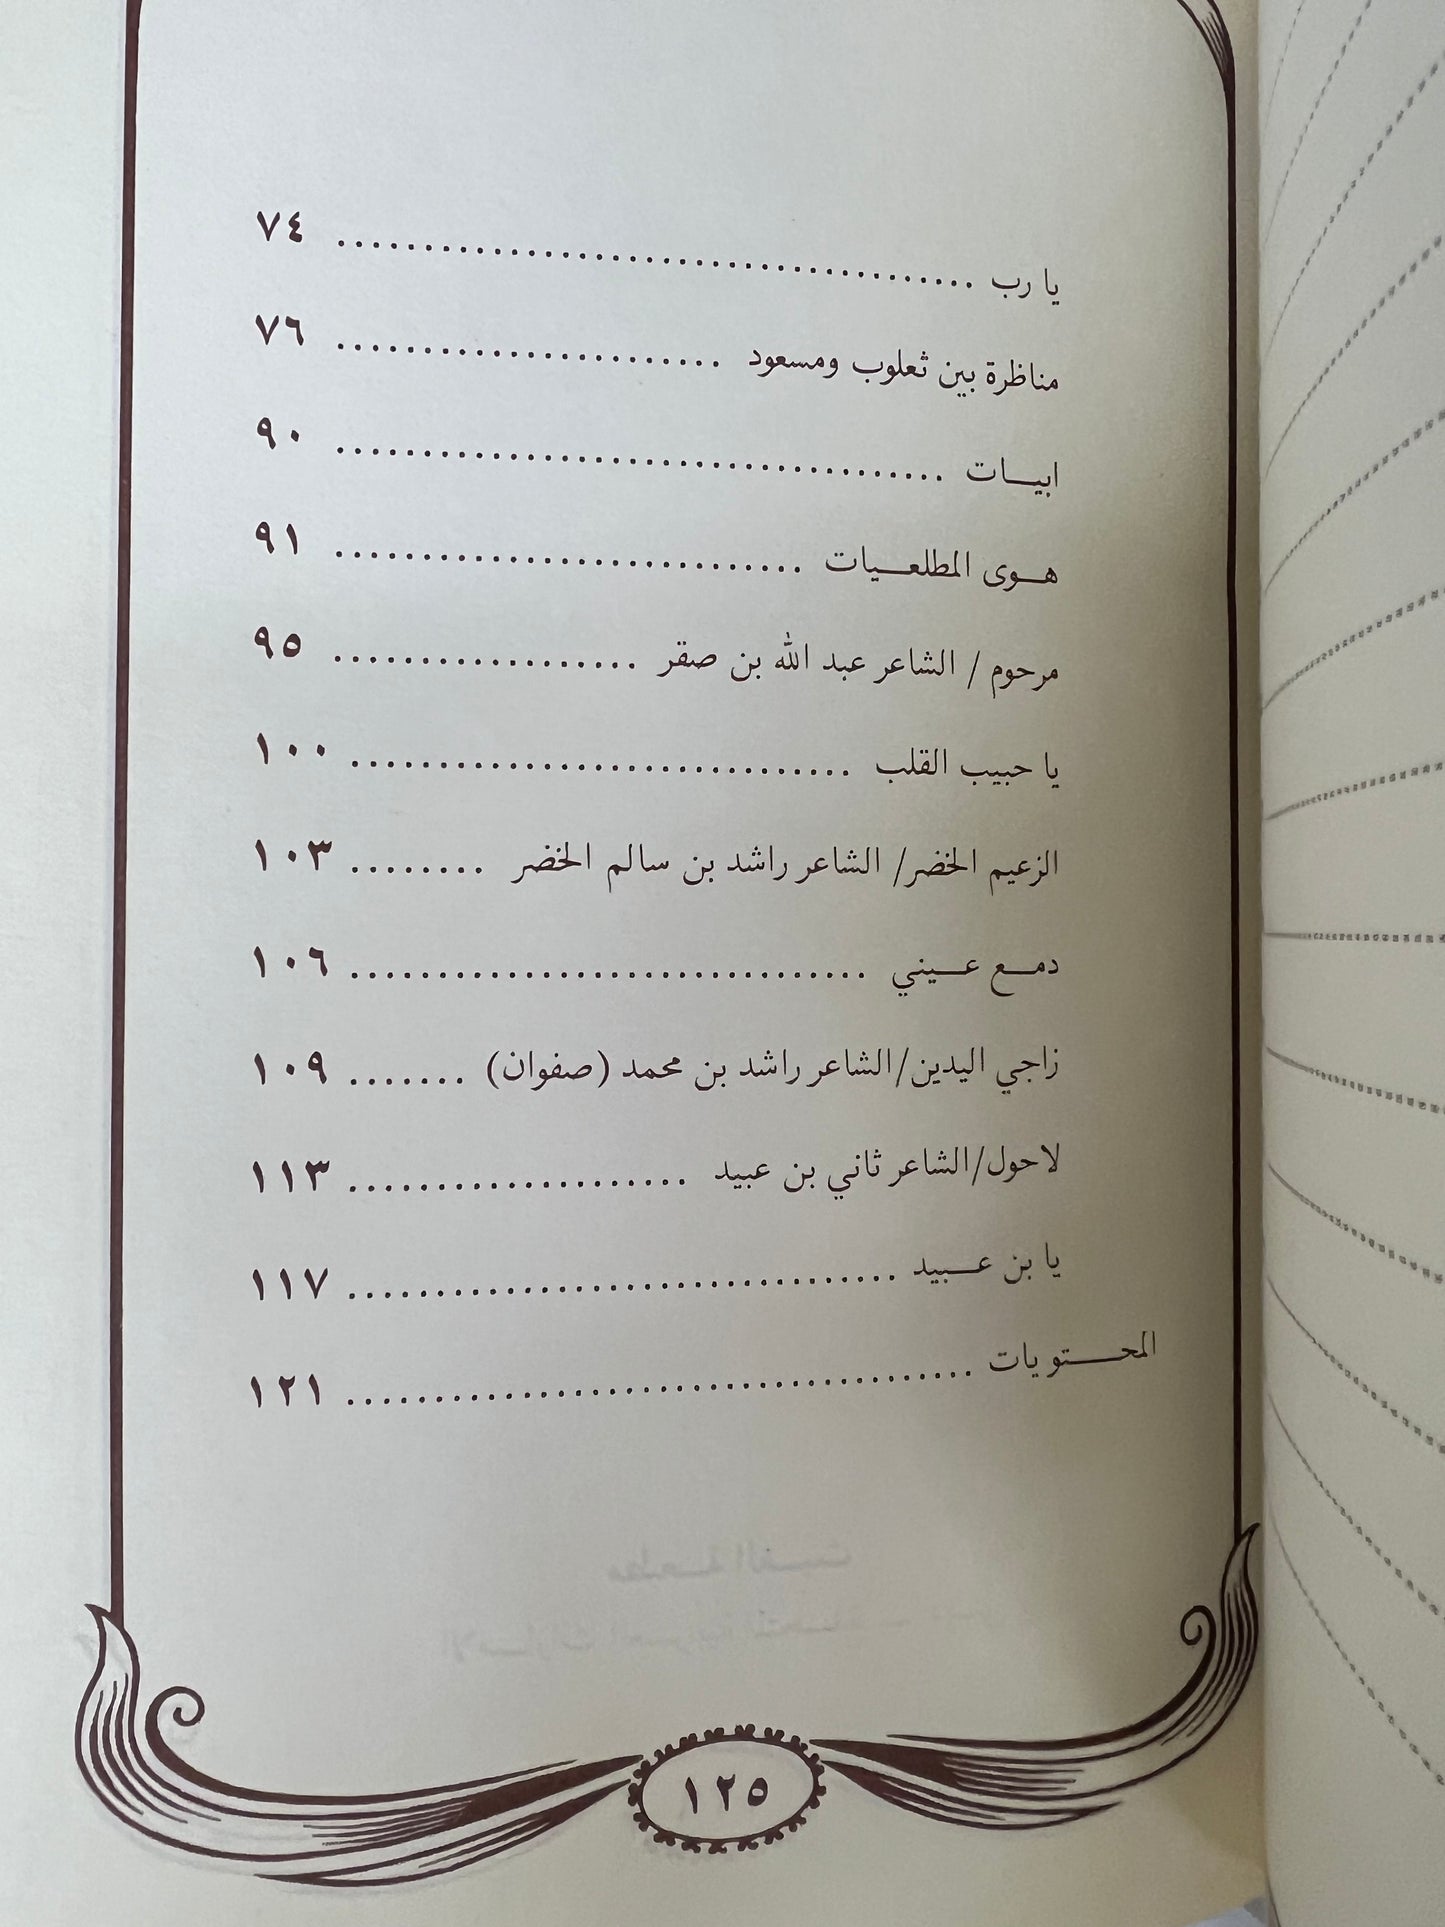 يا رب ..................................... ٧٤
مناظرة بين ثعلوب ومسعود ....................... ٧٦
ابيـــات ................................... ٩٠
هـوى المطلعـــيات ........................... ٩١
مرحوم / الشاعر عبد الله بن صقر .................. ٩٥
يا حبيب القلب ............................. ١٠٠
الزعيم الخضر/ الشاعر راشد بن سالم الخضر ........ ١٠٣
دمـــع عـــيني .............................. ١٠٦
زاجي اليدين/الشاعر راشد بن محمد (صفوان) ....... ١٠٩
لاحول/الشاعر ثاني بن عبيد .................... ١١٣
يا بن عـــبيد ................................ ١١٧
المحـــتويات ..................................... ١٢١
١٢٥